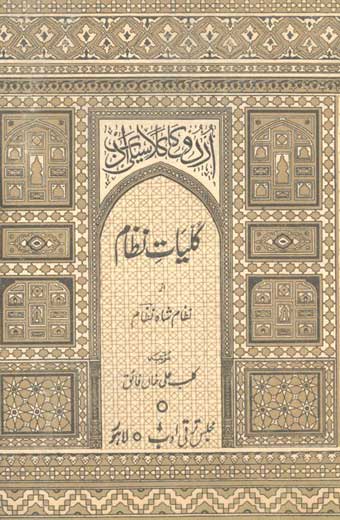 اردو کا کلاسیکی ادب
کلیاتِ نظام
از
نظام شاہ نظام
مرتبہ
کلب علی خاں فائق
مجلس ترقی ادب ○ لاہور